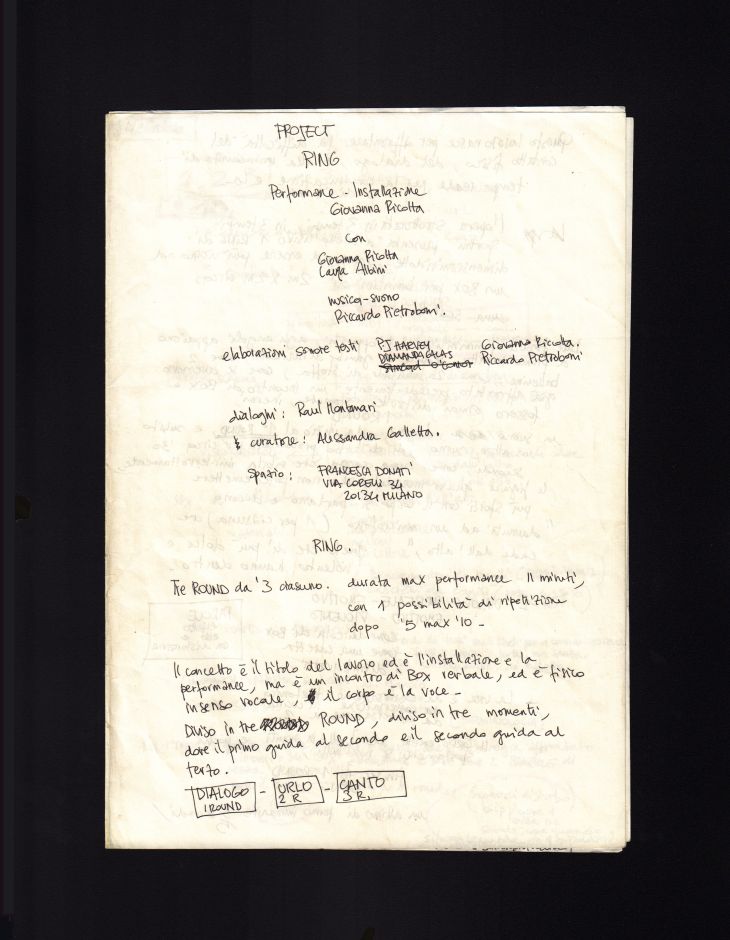 PROJECT
RING
Performance - Installazione
Giovanna Ricotta
con
Giovanna Ricotta
Carla Albini
musica-suono
Riccardo Pietroboni.
elaborazioni sonore testi PJ HARVEY Giovanna Ricotta.
DIAMANDA GALAS Riccardo Pietroboni
Sinead O'Connor
dialoghi: Raul Montanari
curatore: Alessandra Galletta.
spazio: FRANCESCA DONATI
VIA CORELLI 34
20134 MILANO
RING.
Tre ROUND da '3 ciascuno. durata max performance 11 minuti,
con 1 possibilità di ripetizione
dopo '5 max '10 -
Il concetto è il titolo del lavoro ed è l'installazione e la
performance, ma è un incontro di Box verbale, ed è fisico
insenso vocale, il corpo è la voce -
Diviso in tre ROUND, diviso in tre momenti,
dove il primo guida al secondo e il secondo guida al
terzo.
DIALOGO - URLO - CANTO
1 ROUND 2 R 3 R.